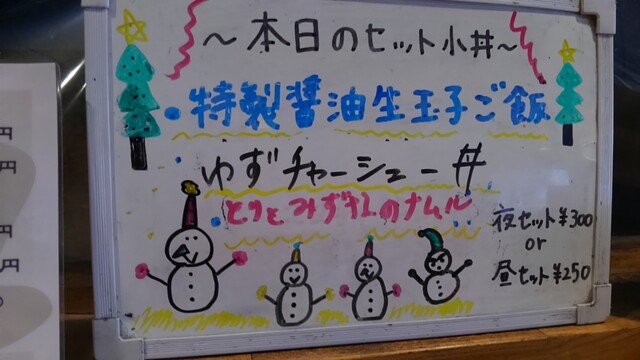 ～本日のセット小丼～
・特製醤油生玉子ご飯
ゆずチャーシュー丼
・とりとみずなのナムル
夜セット¥300
or
昼セット¥250
円
円
円
円